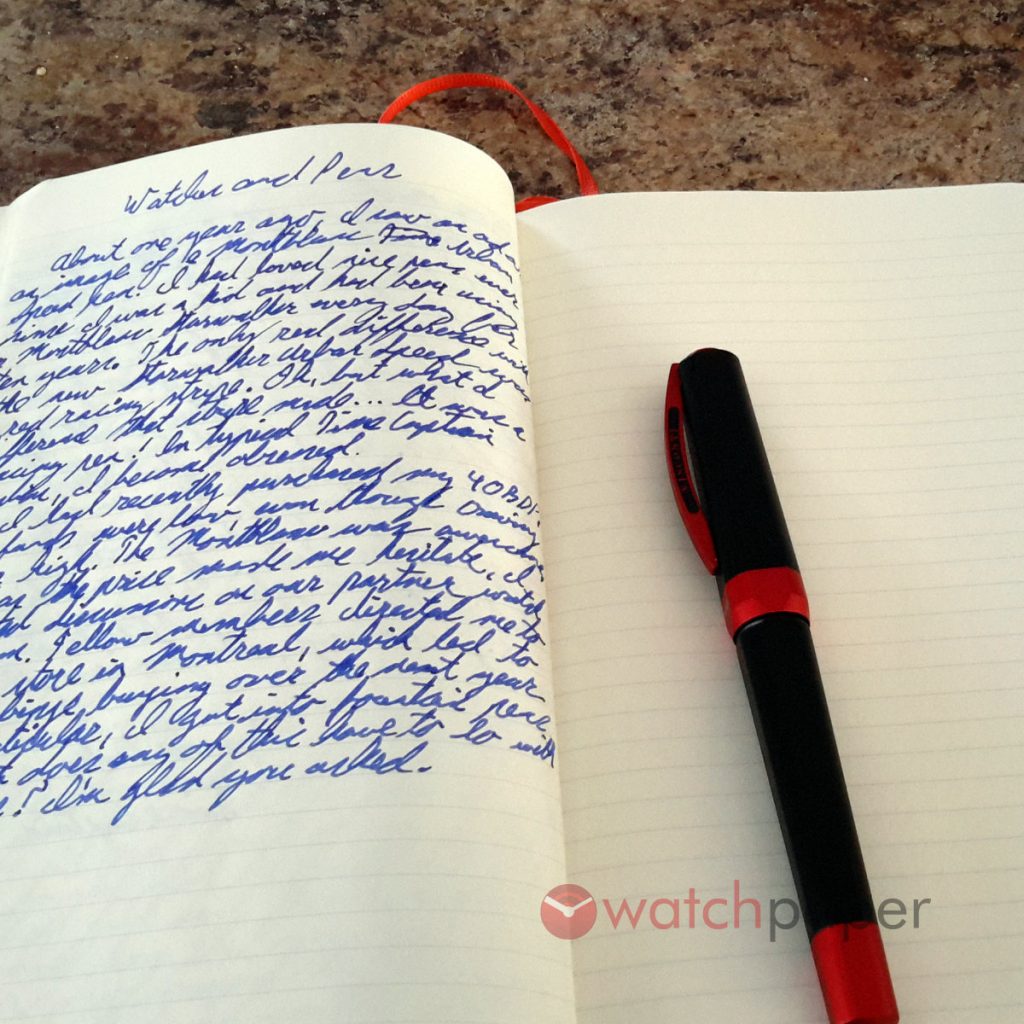 Watches and Pens
About one year ago, I saw an ad
an image of a Montblanc Time Urban
Speed pen. I had loved nice pens ever
since I was a kid and had been using
Montblanc Starwalker every day for
ten years. The only real difference with
the new Starwalker Urban Speed was
red racing stripe. Oh, but what a
difference that stripe made... It was a
racing pen! In typical Time Captain
I became obsessed.
I had recently purchased my 40BD1.
funds were low, even though
high. The Montblanc was
the price made me hesitate. I
discussion on our partner watch
Fellow members directed me to
store in Montreal, which led to
binge buying over the next year
I got into fountain pens
does any of this have to do with
? I'm glad you asked.
watchpaper